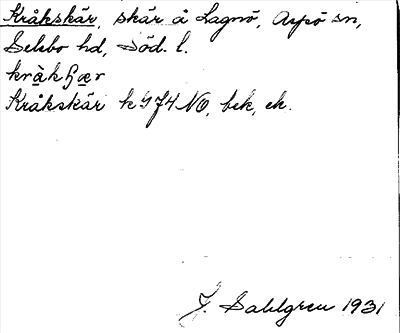 Kråkskär, skär å Lagnö, Aspö sn,
Selebo hd, Söd. l.
Kråkskär k 974 NO, bek, ek.
J. Sahlgren 1931